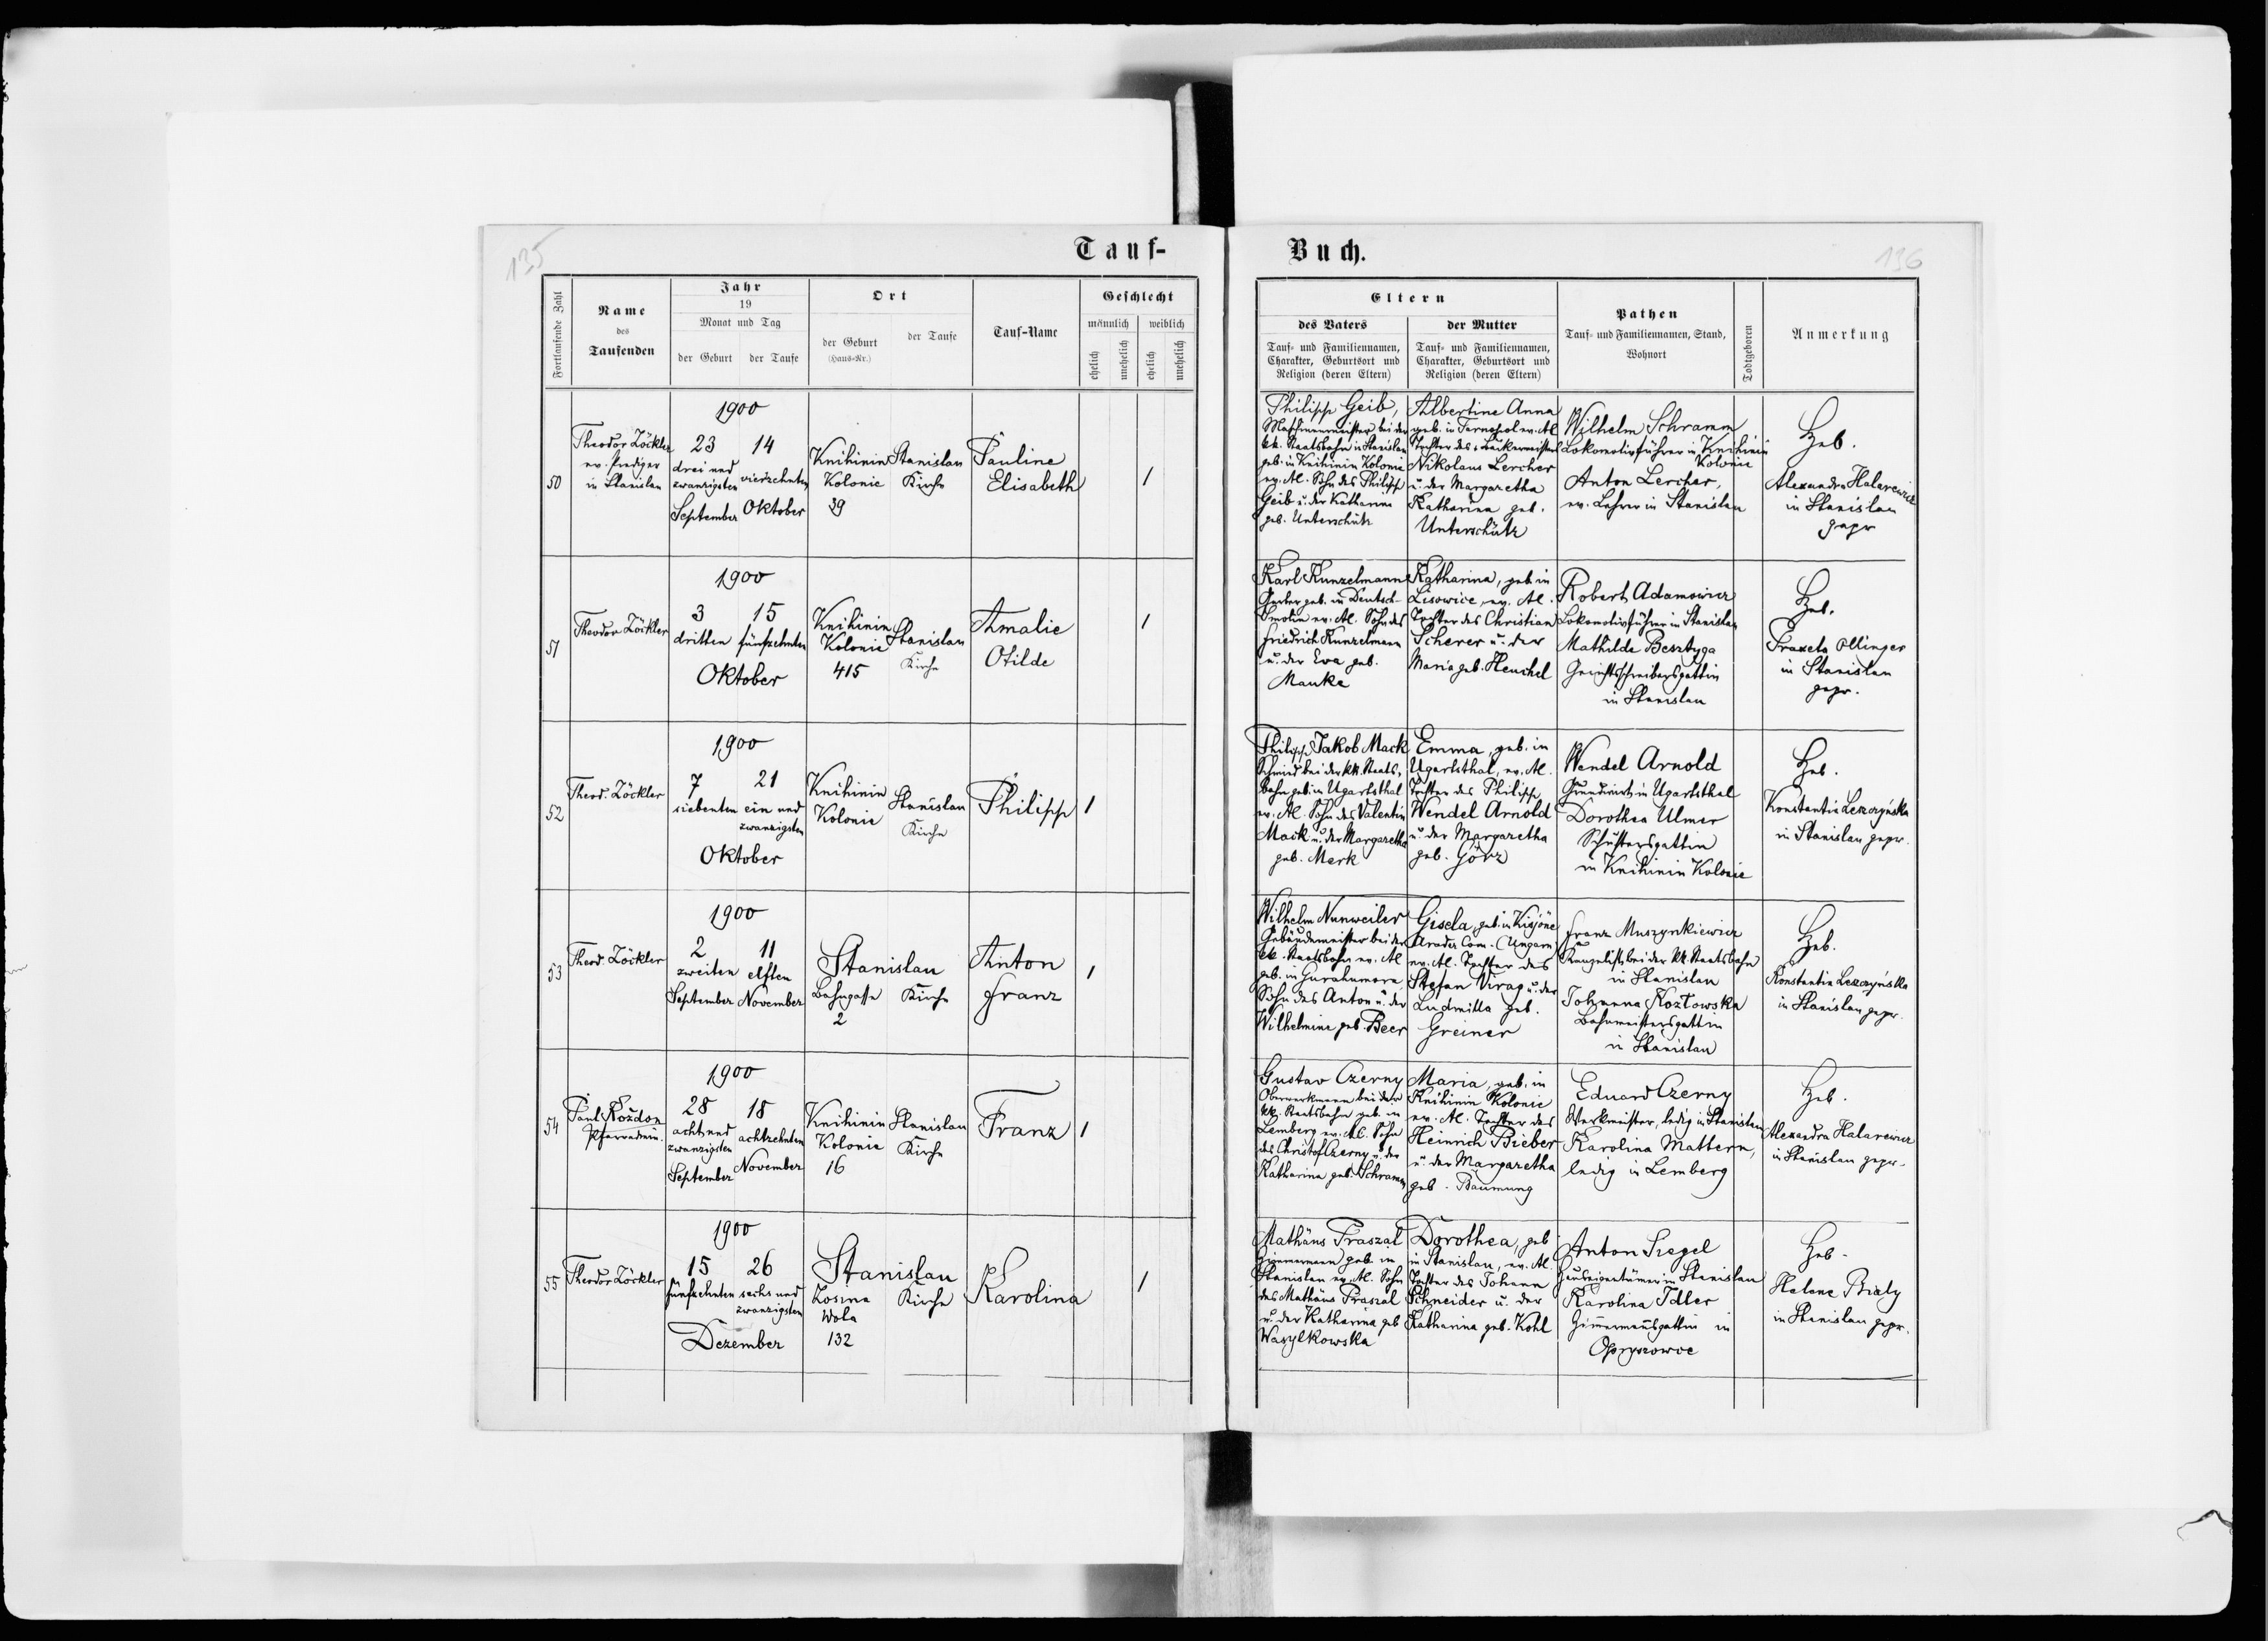 135
Tauf-
Fortlaufende Zahl
Name
des
Taufenden
Jahr
19
Monat und Tag
der Geburt
der Taufe
Ort
der Geburt
(Haus-Nr.)
der Taufe
Tauf-Name
Geschlecht
männlich
weiblich
ehelich
unehelich
ehelich
unehelich
50
Theodor Zöckler
ev. Prediger
in Stanislau
1900
23
drei und
zwanzigsten
September
14
vierzehnten
Oktober
Knihinin
Kolonie
39
Stanislau
Kirche
Pauline
Elisabeth
1
51
Theodor Zöckler
1900
3
dritten
15
fünfzehnten
Oktober
Knihinin
Kolonie
415
Stanislau
Kirche
Amalie
Otilde
1
52
Theod. Zöckler
1900
7
siebenten
21
ein und
zwanzigsten
Oktober
Knihinin
Kolonie
Stanislau
Kirche
Philipp
1
53
Theod. Zöckler
1900
2
zweiten
September
11
elften
November
Stanislau
Bahngasse
2
Kirche
Anton
Franz
1
54
Paul Kozdon
Pfarradmin.
1900
28
acht und
zwanzigsten
September
18
achtzehnten
November
Knihinin
Kolonie
16
Stanislau
Kirche
Franz
1
55
Theodor Zöckler
1900
15
fünfzehnten
26
sechs und
zwanzigsten
Dezember
Stanislau
Wola
132
Kirche
Karolina
1
Buch.
136
Eltern
des Vaters
Tauf- und Familiennamen,
Charakter, Geburtsort und
Religion (deren Eltern)
der Mutter
Tauf- und Familiennamen,
Charakter, Geburtsort und
Religion (deren Eltern)
Pathen
Tauf- und Familiennamen, Stand,
Wohnort
Todtgeboren
Anmerkung
Philipp Geib,
Maschinenmeister bei der
kk. Staatsbahn in Stanislau
geb. in Knihinin Kolonie
ev. Al. Sohn des Philipp
Geib u. der Katharina
geb. Unterschütz
Albertine Anna
geb. in Tarnopol ev. Al.
Tochter des
Nikolaus Lercher
u. der Margaretha
Katharina geb.
Unterschütz
Wilhelm Schramm
Lokomotivführer in Knihinin
Kolonie
Anton Lercher,
ev. Lehrer in Stanislau
Heb.
Alexandra Halarewicz
in Stanislau
gepr
Karl Kunzelmann
geb. in Deutsch-
ev. Al. Sohn des
Friedrich Kunzelmann
u. der Eva geb.
Manke
Katharina, geb in
Lisowice, ev. Al.
Tochter des Christian
Scherer u. der
Maria geb. Heuchel
Robert Adamowicz
Lokomotivführer in Stanislau
Mathilde Besztyga
Gerichtsschreibersgattin
in Stanislau
Heb.
Praxeta Ollinger
in Stanislau
gepr.
Philipp Jakob Mack
Schmied bei der kk. Staats-
bahn geb. in Ugartsthal
ev. Al. Sohn des Valentin
Mack u. der Margaretha
geb. Merk
Emma, geb. in
Ugartsthal, ev. Al.
Tochter des Philipp
Wendel Arnold
u. der Margaretha
geb. Görz
Wendel Arnold
Grundwirt in Ugartsthal
Dorothea Ulmer
Schustersgattin
in Knihinin Kolonie
Heb.
Konstantia Leszczyńska
in Stanislau gepr.
Wilhelm Nunweiler
Gebäudemeister bei der
kk. Staatsbahn ev. Al
geb. in Gurahumora
Sohn des Anton u. der
Wilhelmine geb. Beer
Gisela, geb. in Kisjöne
Arader Com. (Ungarn)
ev. Al. Tochter des
Stefan Virag u. der
Ludmilla geb.
Greiner
Franz Muszynkiewicz
Kanzelist bei der kk Staatsbahn
in Stanislau
Johanna Kozłowska
Bahnmeistersgattin
in Stanislau
Heb.
Konstantia Leszczyńska
in Stanislau gepr.
Gustav Czerny
Oberwerkmann bei der
kk. Staatsbahn geb. in
Lemberg ev. AC. Sohn
des Christof Czerny u. der
Katharina geb. Schramm
Maria, geb. in
Knihinin Kolonie
ev. Al. Tochter des
Heinrich Bieber
u. der Margaretha
geb. Baumung
Eduard Czerny
Werkmeister, ledig in Stanislau
Karolina Mattern,
ledig in Lemberg
Heb.
Alexandra Halarewicz
in Stanislau gepr.
Mathäus Praszal
Zimmermann geb in
Stanislau ev. Al. Sohn
des Mathäus Praszal
u. der Katharina geb
Wasylkowska
Dorothea, geb
in Stanislau, ev. Al.
Tochter des Johann
Schneider u. der
Katharina geb. Kohl
Anton Siegel
Hauseigentümer in Stanislau
Karolina Idler
Zimmermannsgattin in
Opryszowce
Heb.
Helene Bialy
in Stanislau gepr.